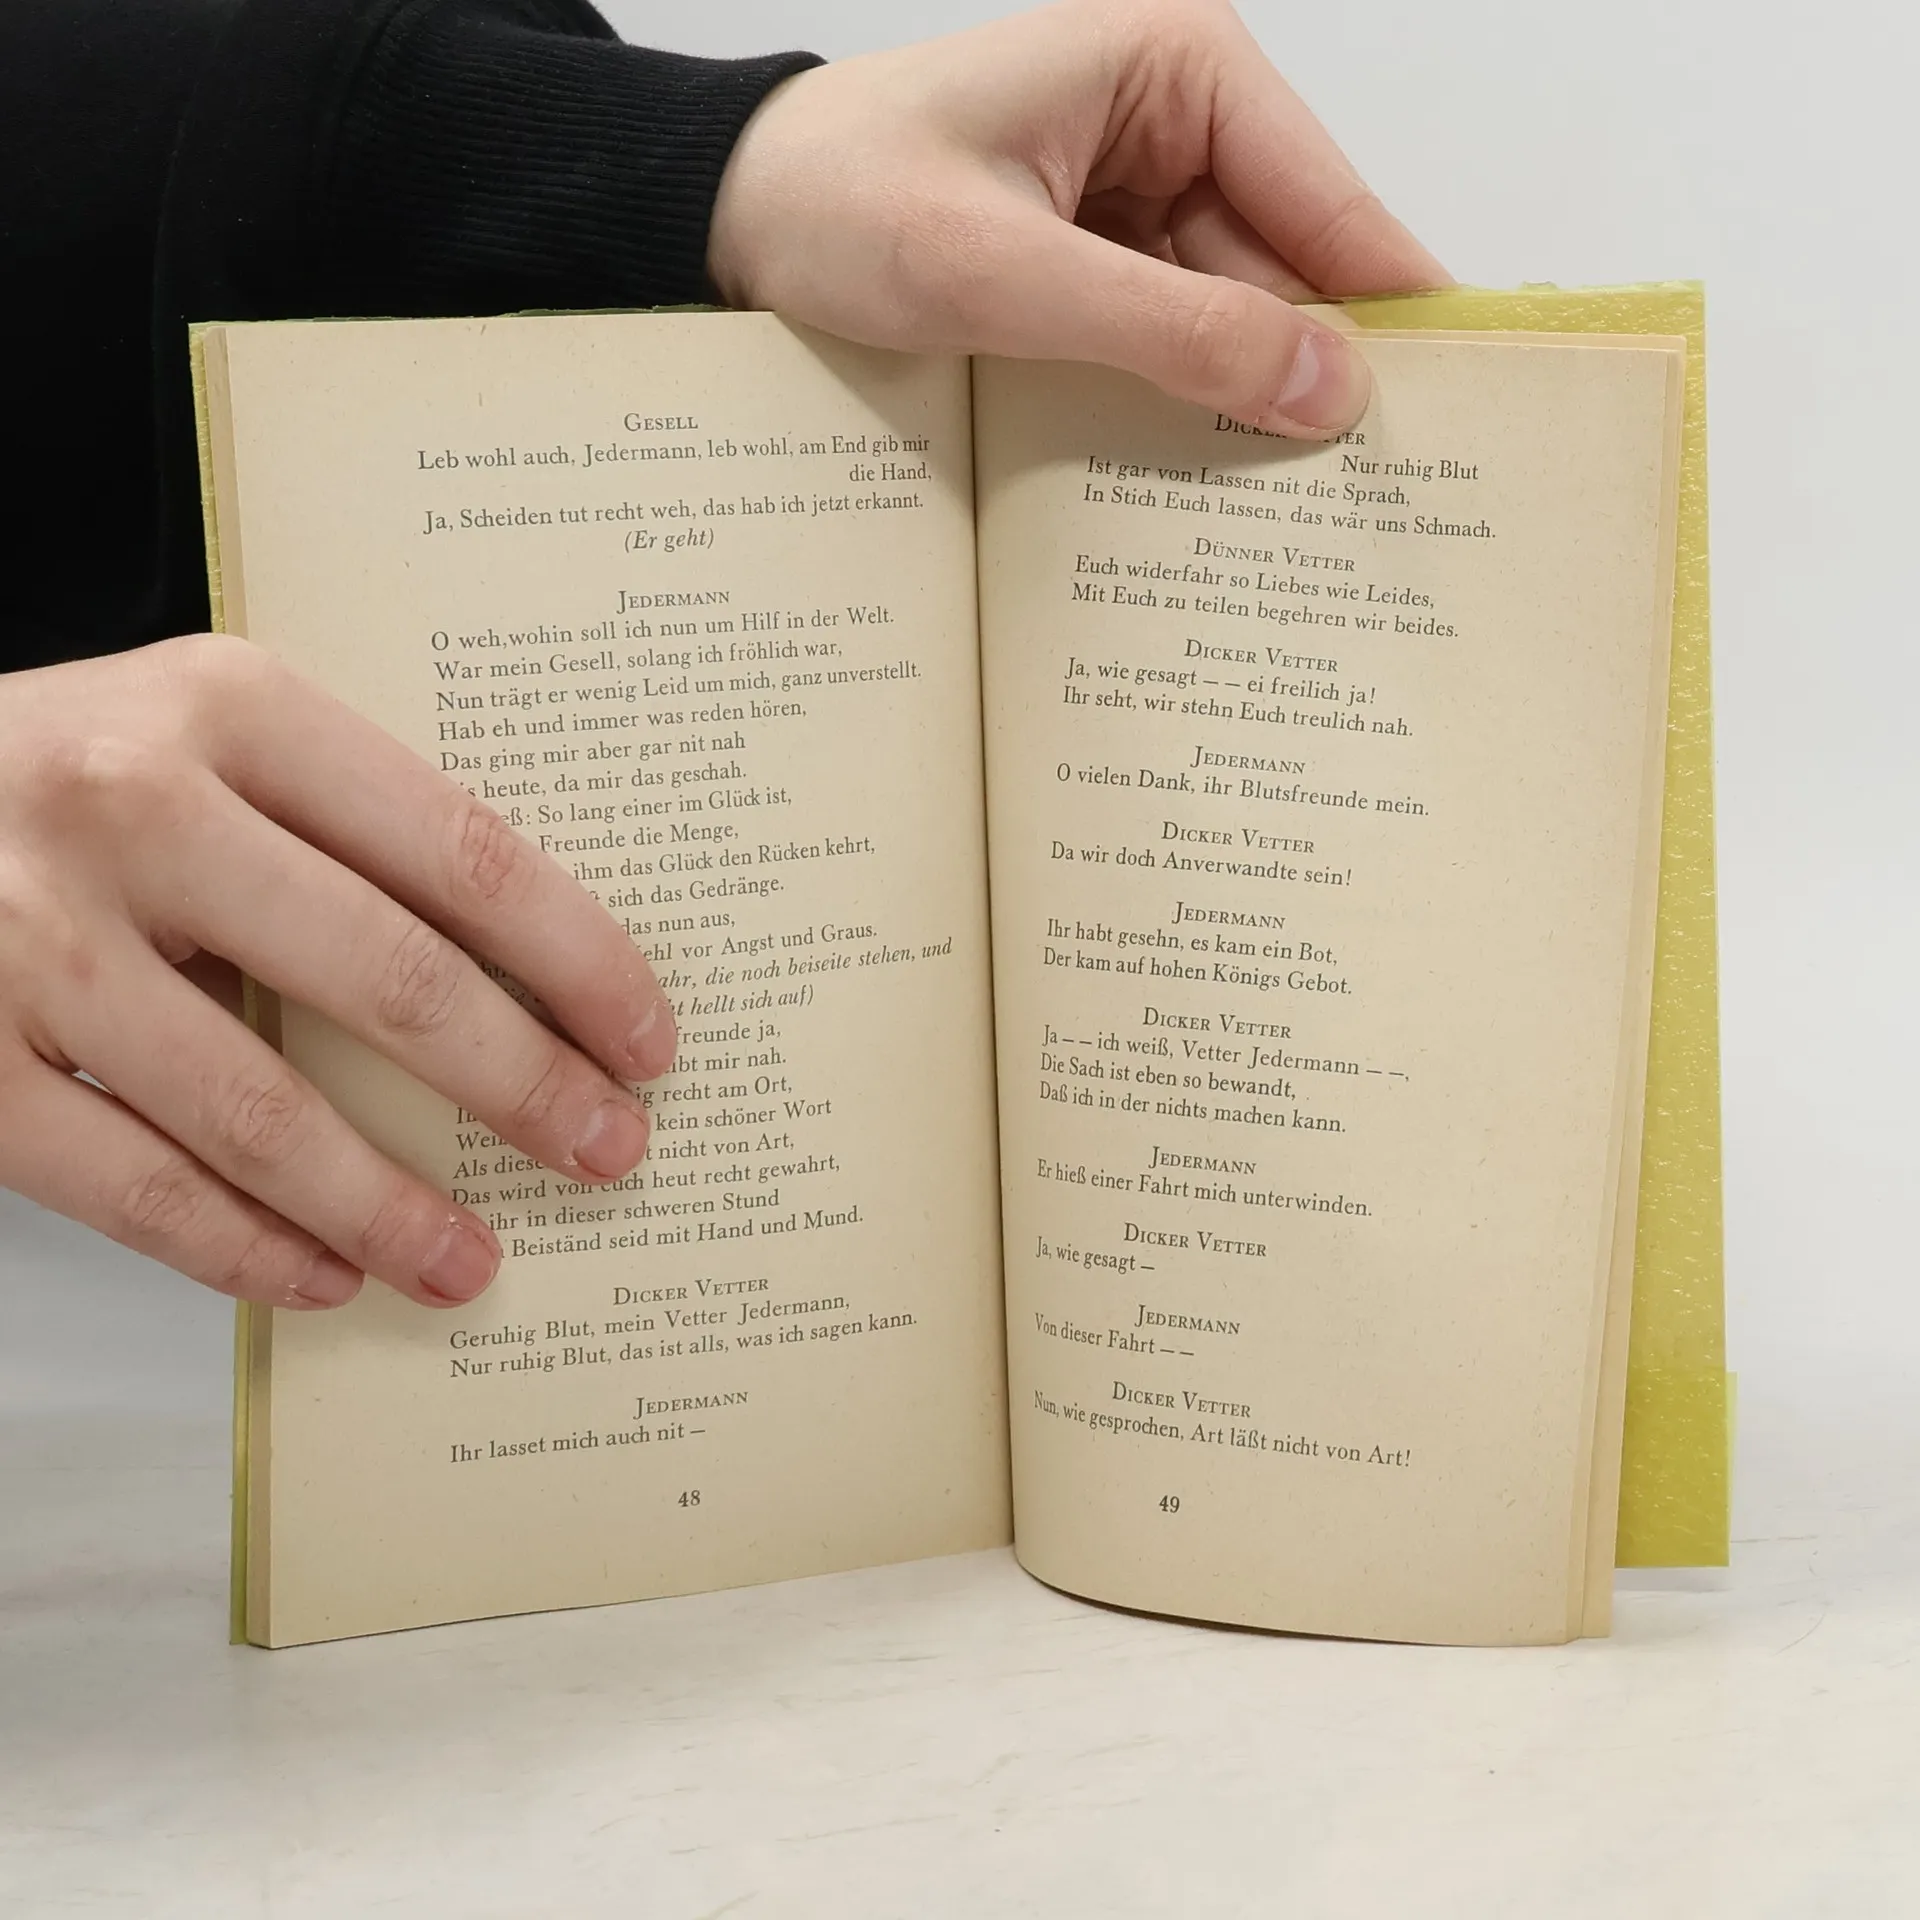 GESELL
Leb wohl auch, Jedermann, leb wohl, am End gib mir
die Hand,
Ja, Scheiden tut recht weh, das hab ich jetzt erkannt.
(Er geht)
JEDERMANN
O weh,wohin soll ich nun um Hilf in der Welt.
War mein Gesell, solang ich fröhlich war,
Nun trägt er wenig Leid um mich, ganz unverstellt.
Hab eh und immer was reden hören,
Das ging mir aber gar nit nah
heute, da mir das geschah.
So lang einer im Glück ist,
Freunde die Menge,
ihm das Glück den Rücken kehrt,
sich das Gedränge.
das nun aus,
vor Angst und Graus.
die noch beiseite stehen, und
hellt sich auf)
ja,
mir nah.
recht am Ort,
kein schöner Wort
nicht von Art,
Das wird von euch heut recht gewahrt,
ihr in dieser schweren Stund
Beiständ seid mit Hand und Mund.
DICKER VETTER
Geruhig Blut, mein Vetter Jedermann,
Nur ruhig Blut, das ist alls, was ich sagen kann.
JEDERMANN
Ihr lasset mich auch nit –
48
DICKER VETTER
Nur ruhig Blut
Ist gar von Lassen nit die Sprach,
In Stich Euch lassen, das wär uns Schmach.
DÜNNER VETTER
Euch widerfahr so Liebes wie Leides,
Mit Euch zu teilen begehren wir beides.
DICKER VETTER
Ja, wie gesagt – – ei freilich ja!
Ihr seht, wir stehn Euch treulich nah.
JEDERMANN
O vielen Dank, ihr Blutsfreunde mein.
DICKER VETTER
Da wir doch Anverwandte sein!
JEDERMANN
Ihr habt gesehn, es kam ein Bot,
Der kam auf hohen Königs Gebot.
DICKER VETTER
Ja – – ich weiß, Vetter Jedermann – –,
Die Sach ist eben so bewandt,
Daß ich in der nichts machen kann.
JEDERMANN
Er hieß einer Fahrt mich unterwinden.
DICKER VETTER
Ja, wie gesagt –
JEDERMANN
Von dieser Fahrt – –
DICKER VETTER
Nun, wie gesprochen, Art läßt nicht von Art!
49